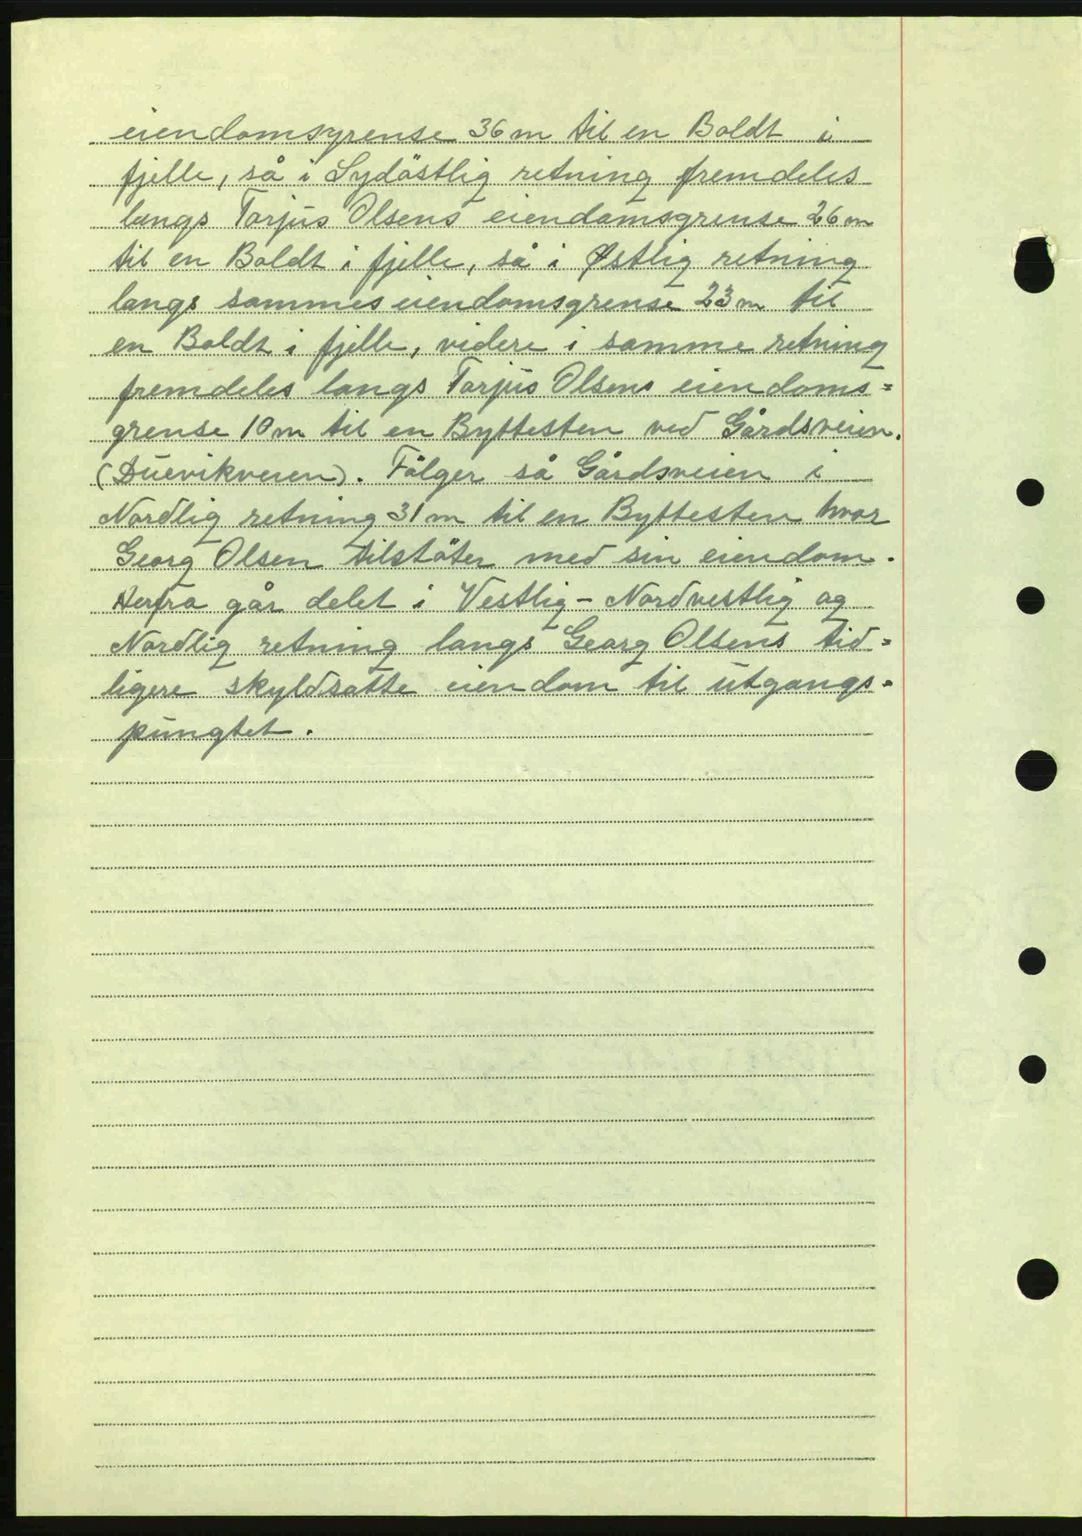 eiendomsgrense 36 m til en Boldt i
fjelle, så i Sydöstlig retning fremdeles
langs Torjus Olsens eiendomsgrense 26 m
til en Boldt i fjelle, så i Østlig retning
langs sammes eiendomsgrense 23 m til
en Boldt i fjelle, videre i samme retning
fremdeles langs Torjus Olsens eiendoms=
grense 10 m til en Byttesten ved Gårdsveien.
(Duevikveien). Fölger så Gårdsveien i
Nordlig retning 31 m til en Byttesten hvor
Georg Olsen tilstöter med sin eiendom.
Herfra går delet i Vestlig - Nordvestlig og
Nordlig retning langs Georg Olsens tid=
ligere skyldsatte eiendom til utgangs=
pungtet.